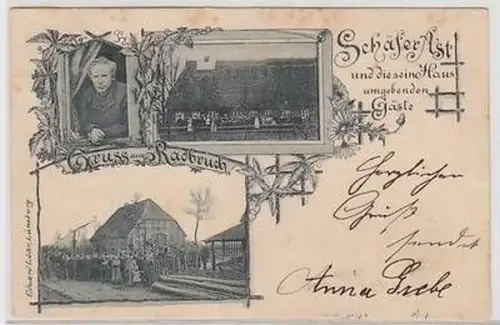 Schäfer Ast
und die sein Haus
umgebenden
Gäste
Gruss aus Radbruch.
Herzlichen
Gruß
sendet
Anna